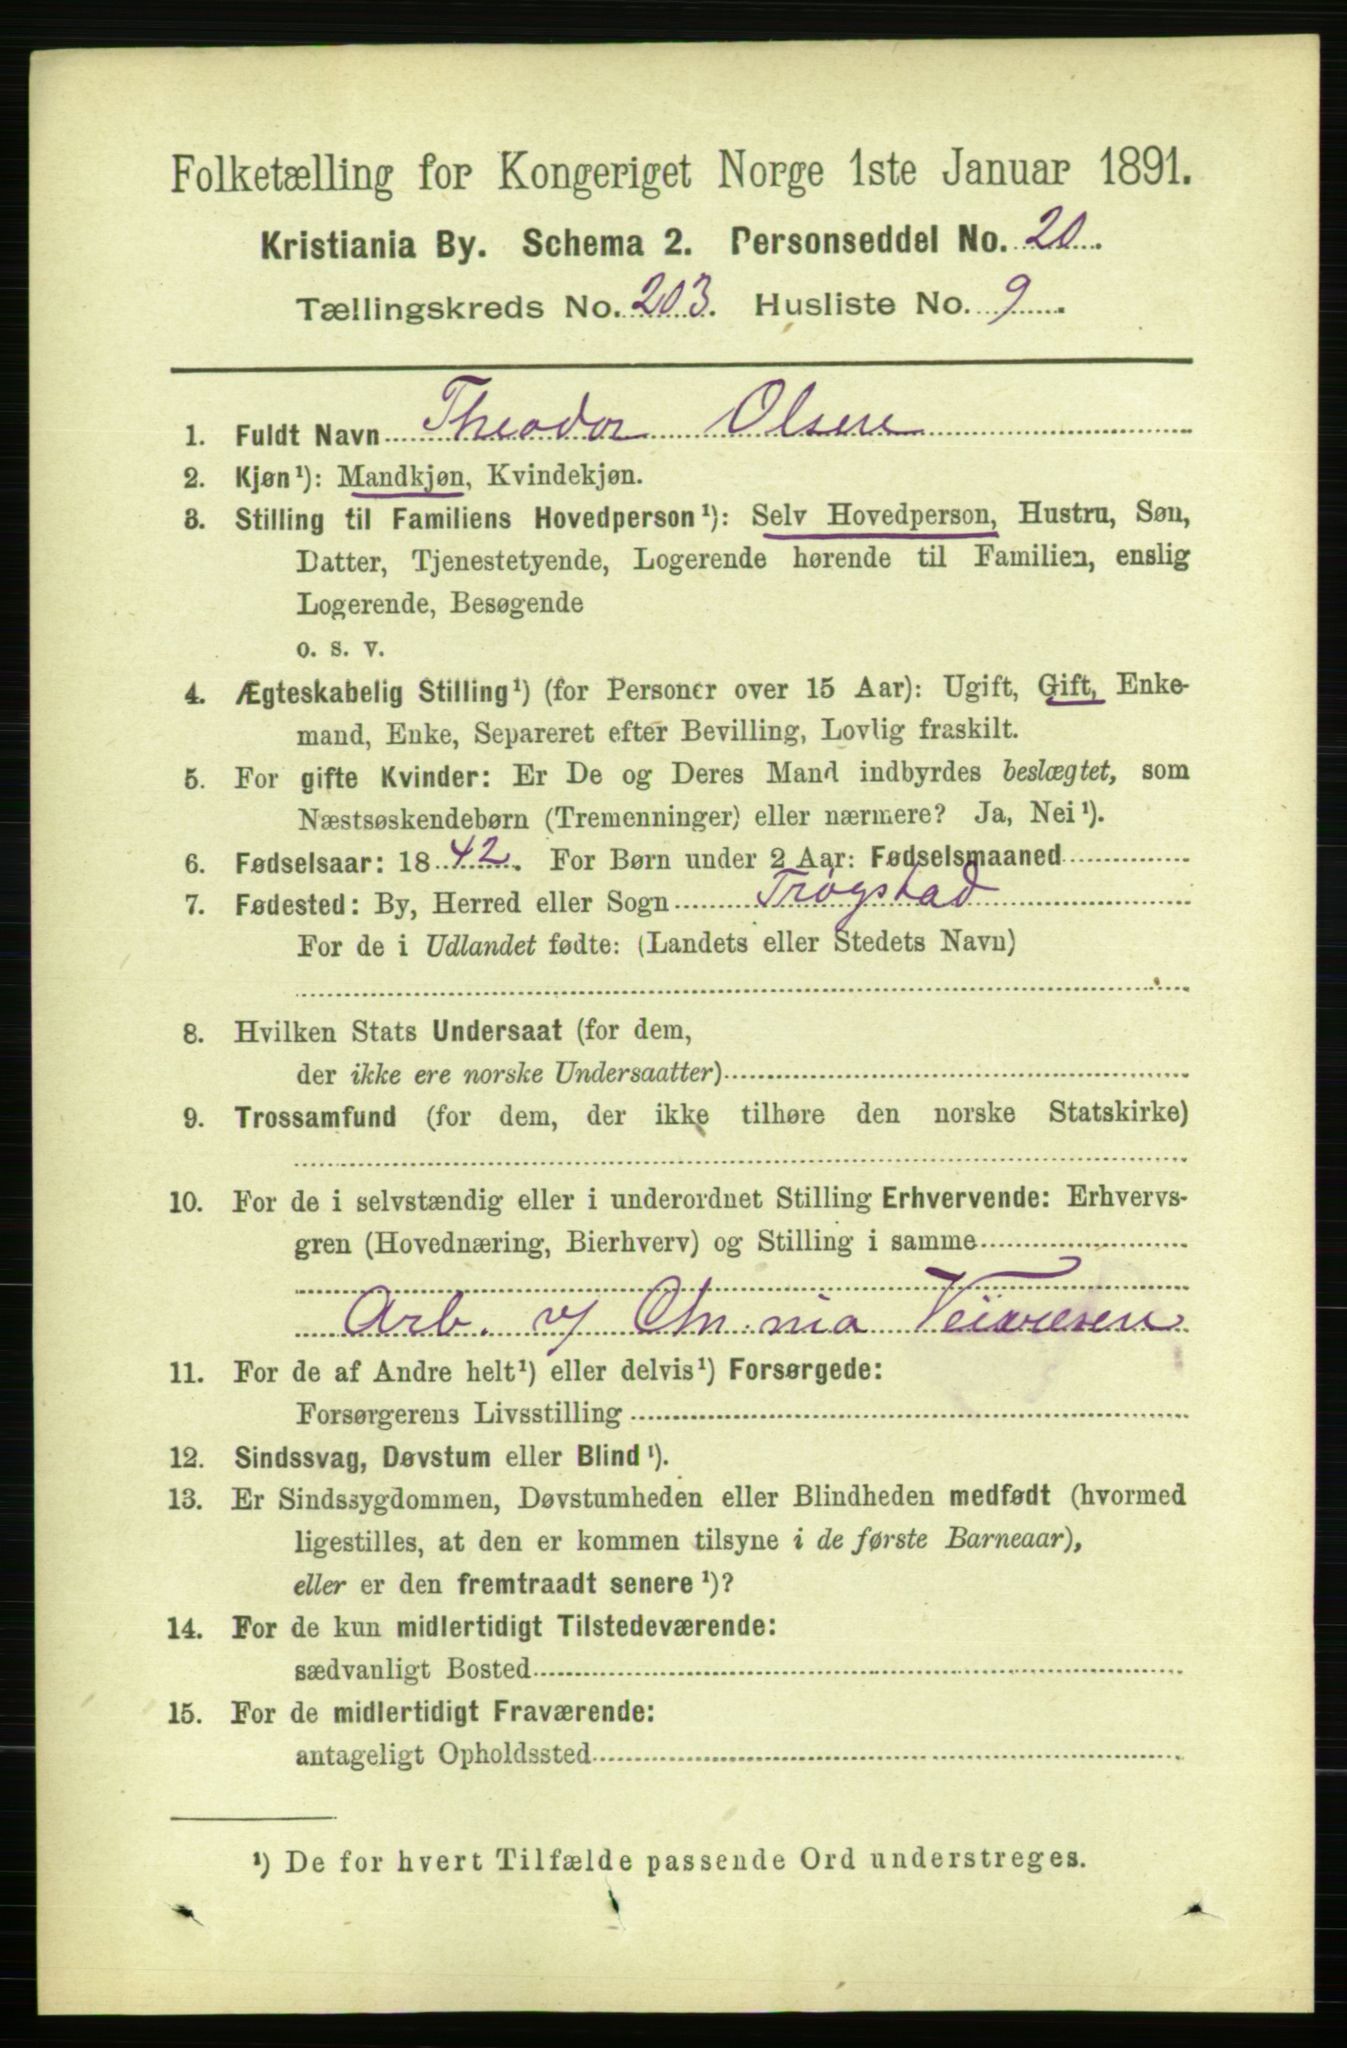 Folketælling for Kongeriget Norge 1ste Januar 1891.
Kristiania By. Schema 2. Personseddel No. 20.
Tællingskreds No. 203. Husliste No. 9.
1. Fuldt Navn Theodor Olsen
2. Kjøn¹): Mandkjøn, Kvindekjøn.
3. Stilling til Familiens Hovedperson¹): Selv Hovedperson, Hustru, Søn,
Datter, Tjenestetyende, Logerende hørende til Familien, enslig
Logerende, Besøgende
o. s. v.
4. Ægteskabelig Stilling¹) (for Personer over 15 Aar): Ugift, Gift, Enke-
mand, Enke, Separeret efter Bevilling, Lovlig fraskilt.
5. For gifte Kvinder: Er De og Deres Mand indbyrdes beslægtet, som
Næstsøskendebørn (Tremenninger) eller nærmere? Ja, Nei¹).
6. Fødselsaar: 1842. For Børn under 2 Aar: Fødselsmaaned
7. Fødested: By, Herred eller Sogn Trögstad
For de i Udlandet fødte: (Landets eller Stedets Navn)
8. Hvilken Stats Undersaat (for dem,
der ikke ere norske Undersaatter)
9. Trossamfund (for dem, der ikke tilhøre den norske Statskirke)
10. For de i selvstændig eller i underordnet Stilling Erhvervende: Erhvervs-
gren (Hovednæring, Bierhverv) og Stilling i samme
Arb. v/ Chr.nia Veivæsen
11. For de af Andre helt¹) eller delvis¹) Forsørgede:
Forsørgerens Livsstilling
12. Sindssvag, Døvstum eller Blind¹).
13. Er Sindssygdommen, Døvstumheden eller Blindheden medfødt (hvormed
ligestilles, at den er kommen tilsyne i de første Barneaar),
eller er den fremtraadt senere¹)?
14. For de kun midlertidigt Tilstedeværende:
sædvanligt Bosted
15. For de midlertidigt Fraværende:
antageligt Opholdssted
¹) De for hvert Tilfælde passende Ord understreges.